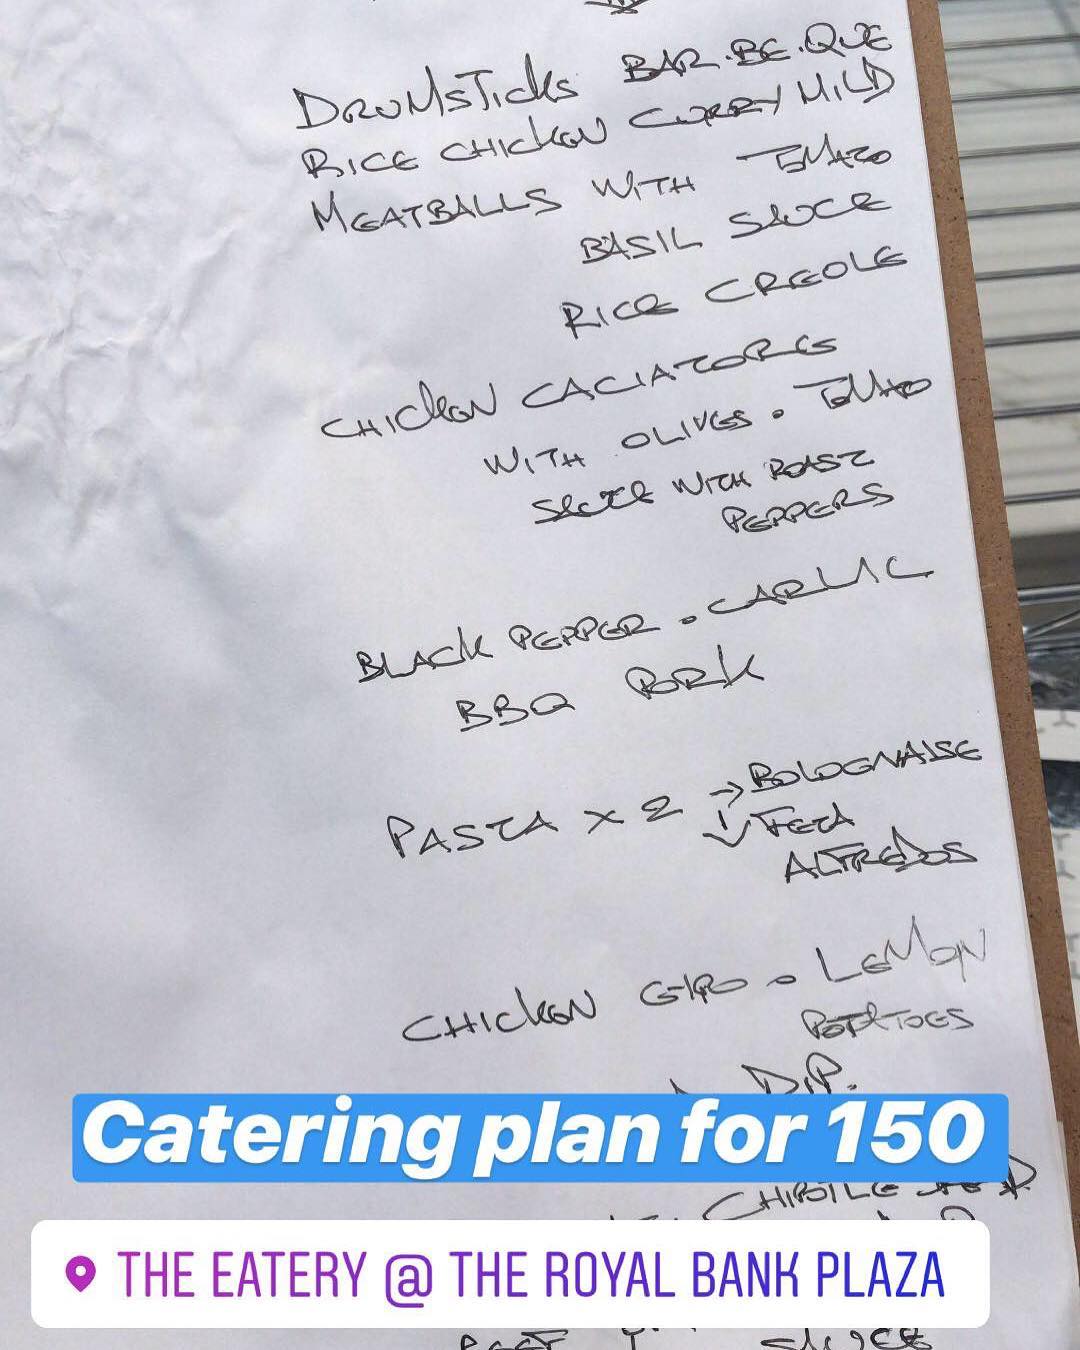 DRUMSTICKS BAR.BE.QUE
RICE CHICKEN CURRY MILD
MEATBALLS WITH TOMATO
BASIL SAUCE
RICE CREOLE
CHICKEN CACIATORE
WITH OLIVES . TOMATO
SAUCE WITH ROAST
PEPPERS
BLACK PEPPER . GARLIC
BBQ PORK
PASTA x 2 → BOLOGNAISE
↓ FETA
ALFREDOS
CHICKEN GIRO . LEMON
POTATOES
DIP.
Catering plan for 150
CHIPOTLE
THE EATERY @ THE ROYAL BANK PLAZA
SAUCE